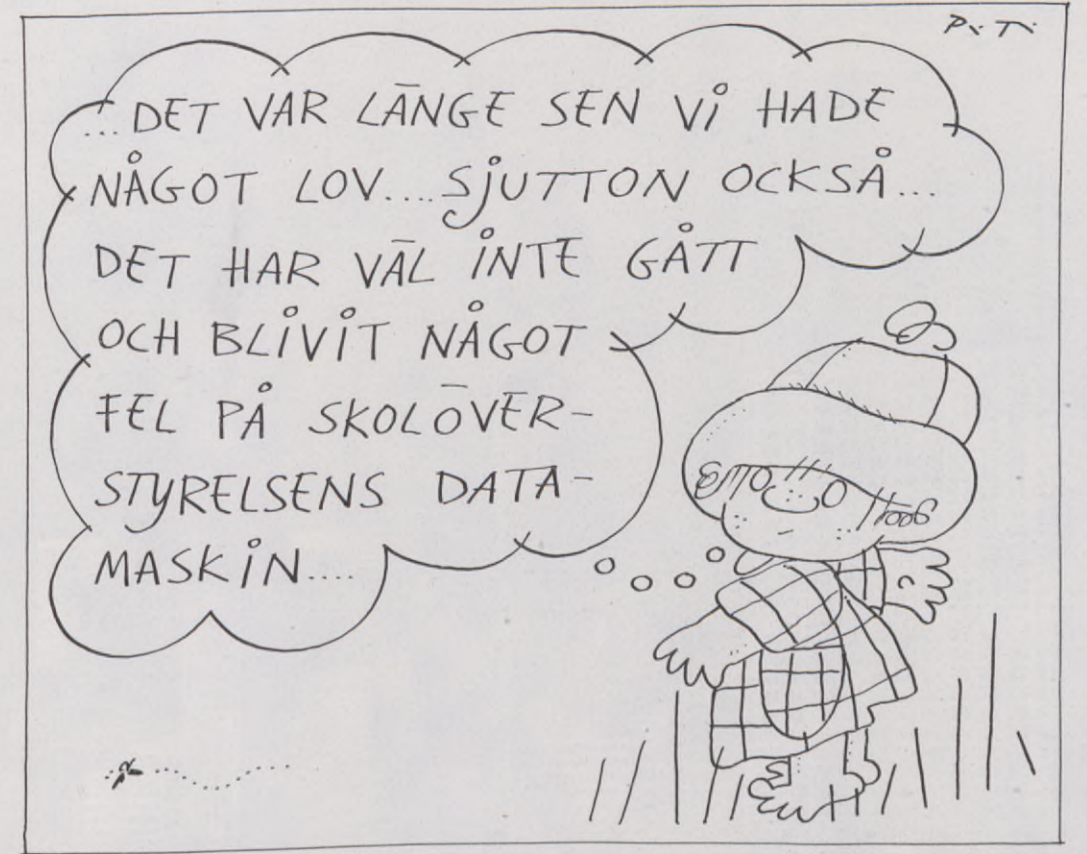 Pi-Ti
...DET VAR LÄNGE SEN Vi HADE
NÅGOT LOV....SJUTTON OCKSÅ...
DET HAR VÄL iNTE GÅTT
OCH BLiViT NÅGOT
FEL PÅ SKOLÖVER-
STYRELSENS DATA-
MASKiN....